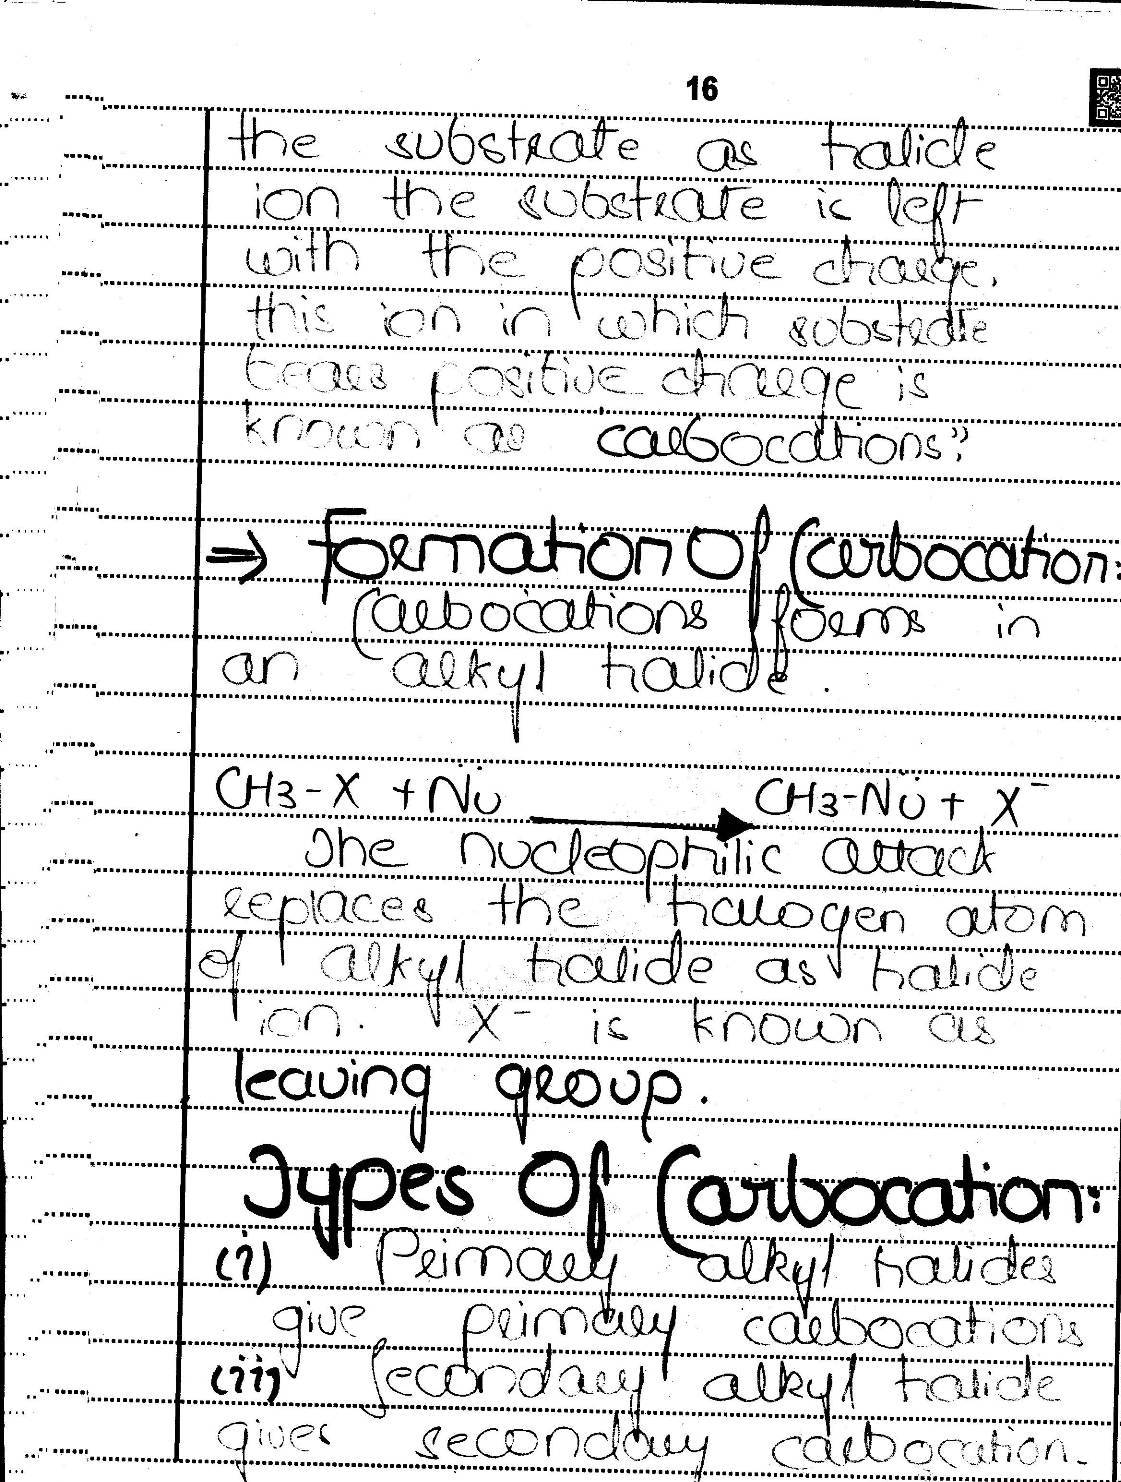 16
the substrate as halide
ion the substrate is left
with the positive charge.
this ion in which substrate
bears positive charge is
known as carbocations".
⇒ Formation Of Carbocation:
Carbocations forms in
an alkyl halide.
CH3-X + Nü → CH3-Nü + X⁻
The nucleophilic attack
replaces the halogen atom
of alkyl halide as halide
ion. X⁻ is known as
leaving group.
Types Of Carbocation:
(i) Primary alkyl halides
give primary carbocations
(ii) Secondary alkyl halide
gives secondary carbocation.